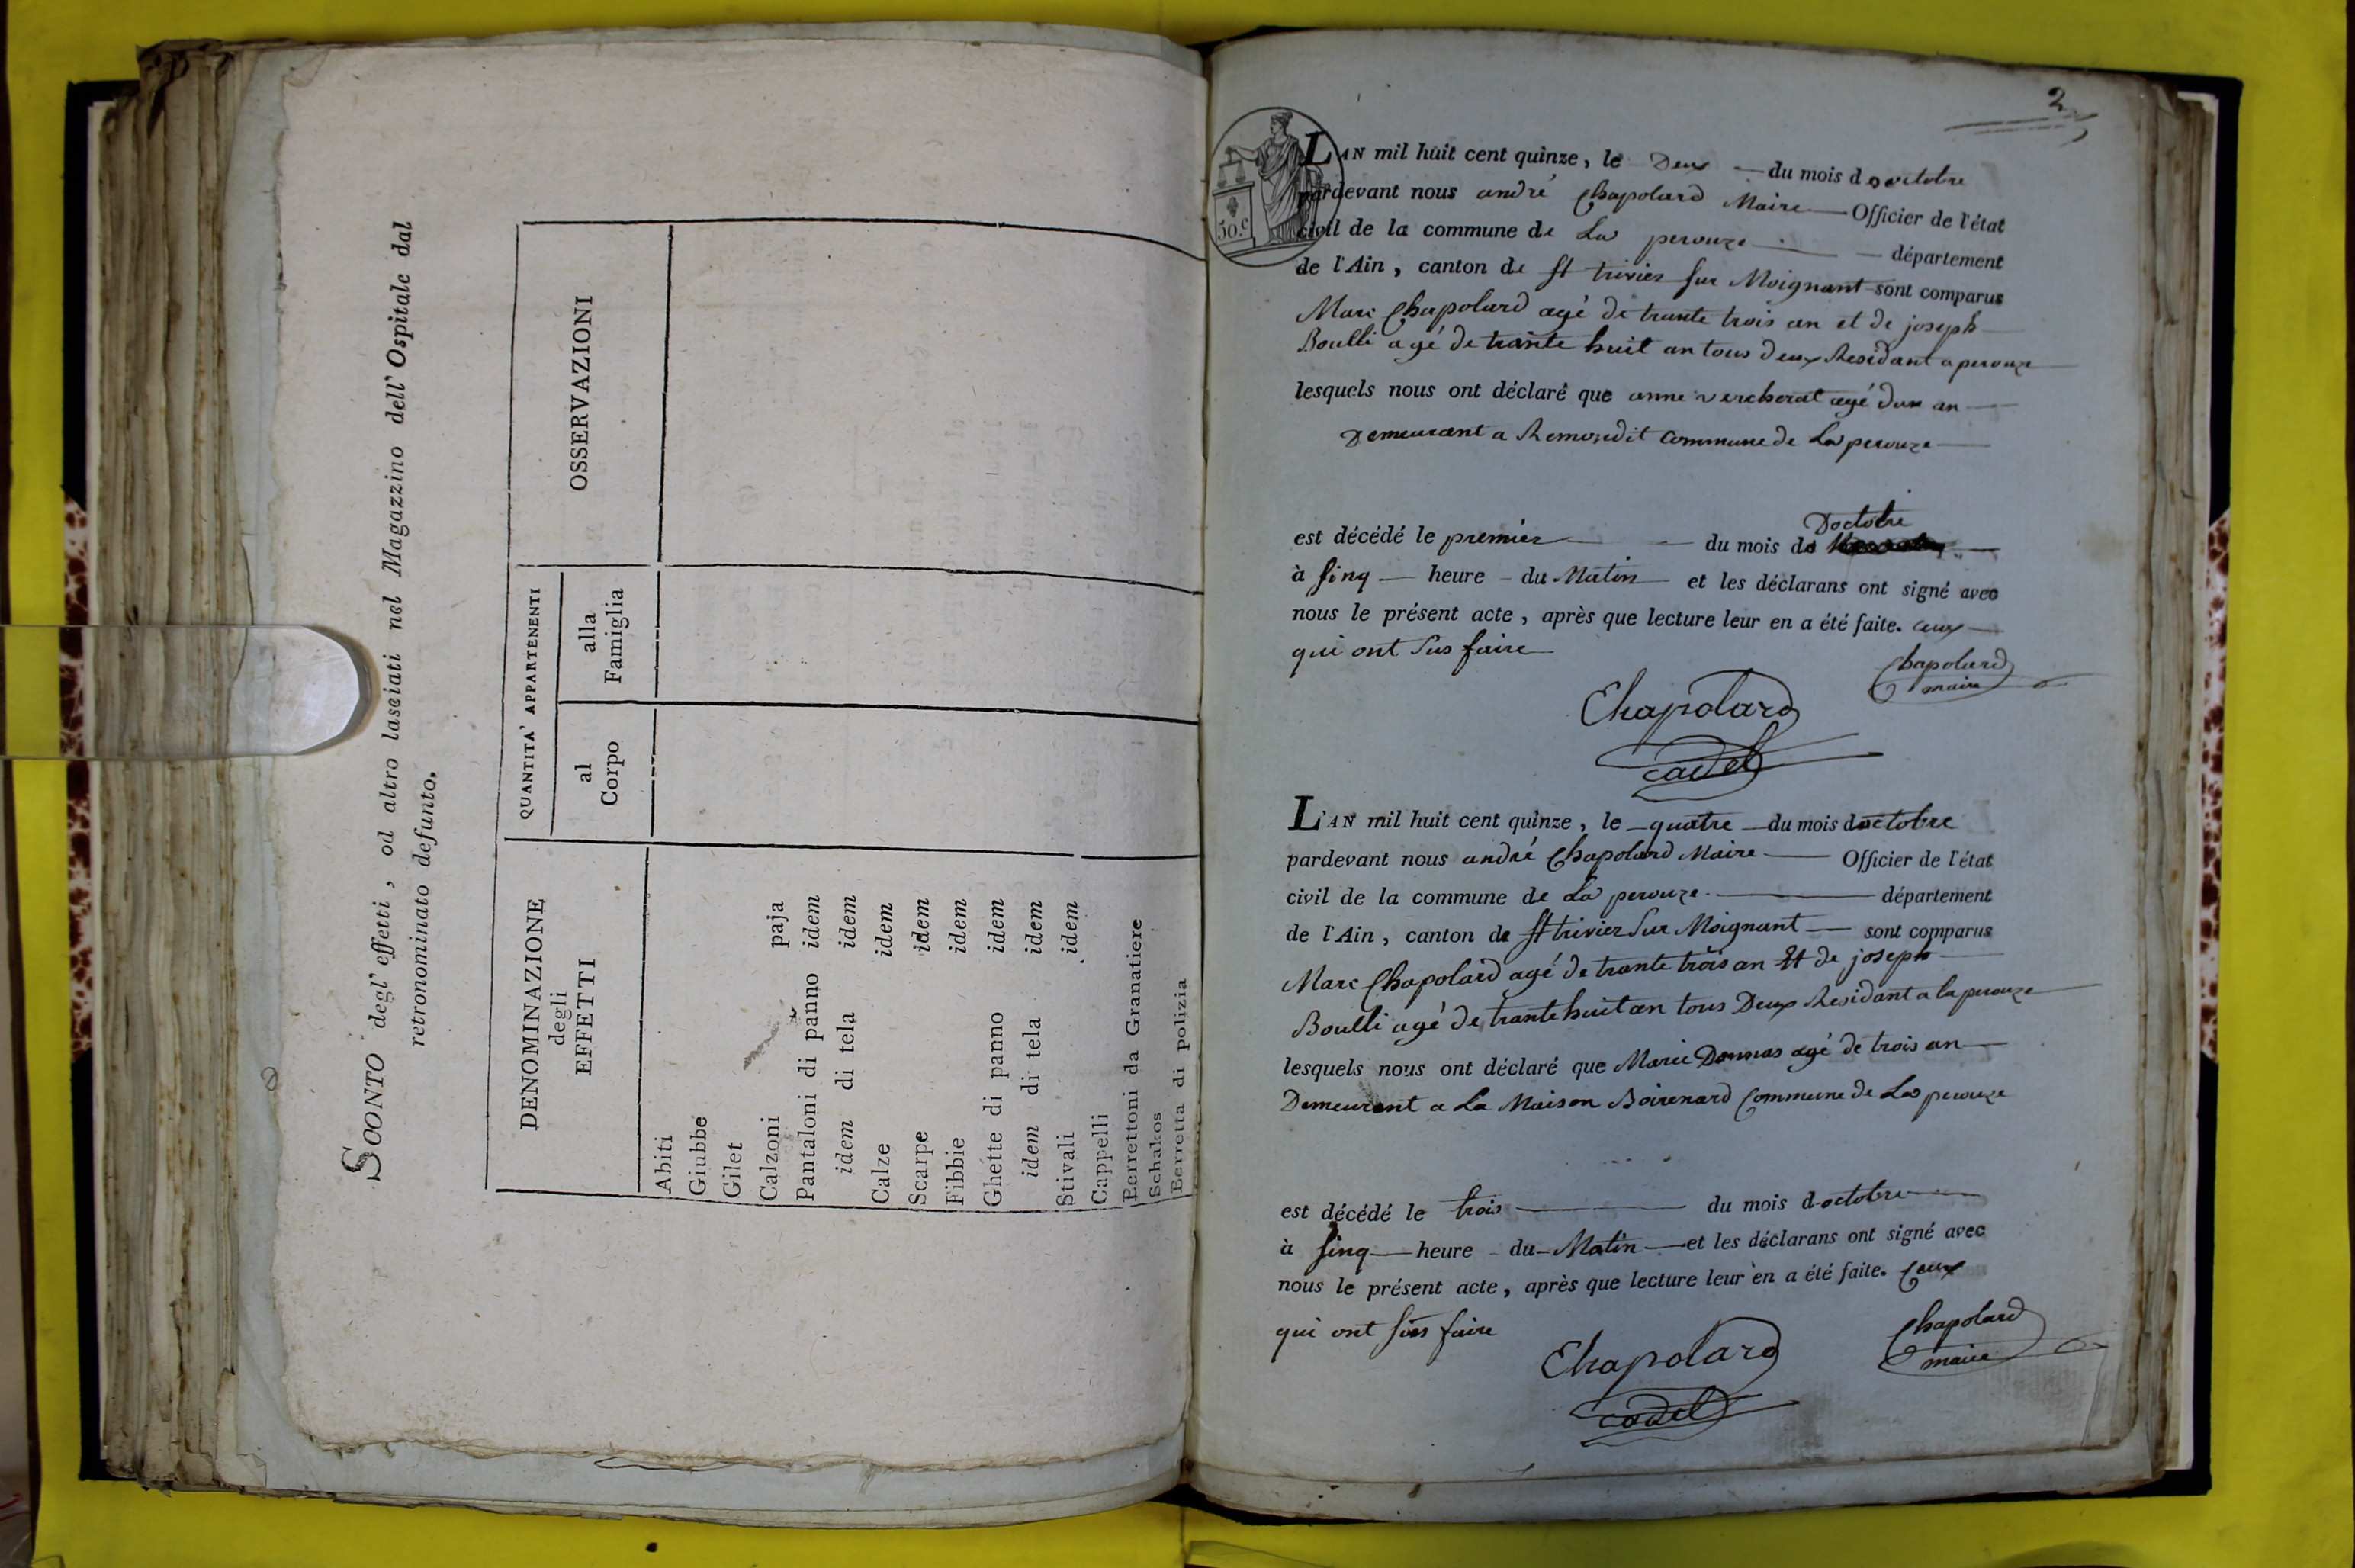 SCONTO degl' effetti, od altro lasciati nel Magazzino dell' Ospitale dal
retronominato defunto.
DENOMINAZIONE
degli
EFFETTI
QUANTITA' APPARTENENTI
al
Corpo
alla
Famiglia
OSSERVAZIONI
Abiti
Giubbe
Gilet
Calzoni paja
Pantaloni di panno idem
idem di tela idem
Calze idem
Scarpe idem
Fibbie idem
Ghette di panno idem
idem di tela idem
Stivali idem
Cappelli
Berrettoni da Granatiere
Schakos
Berretta di polizia
2
50.c
LAN mil huit cent quinze, le Deux du mois d octobre
pardevant nous andré Chapolard Maire Officier de l'état
civil de la commune de La perouze département
de l'Ain, canton de st trivier sur Moignant sont comparus
Marc Chapolard agé de trante trois an et de joseph
Boulli agé de trante huit an tous deux Residant a perouze
lesquels nous ont déclaré que anne vercherat agé dun an
Demeurant a commune de La perouze
Doctobre
est décédé le premier du mois de
à sinq heure du Matin et les déclarans ont signé avec
nous le présent acte, après que lecture leur en a été faite. ceux
qui ont sus faire
Chapolard
maire
Chapolard
cadet
L'AN mil huit cent quinze, le quatre du mois doctobre
pardevant nous andré Chapolard Maire Officier de l'état
civil de la commune de La perouze département
de l'Ain, canton de st trivier sur Moignant sont comparus
Marc Chapolard agé de trante trois an Et de joseph
Boulli agé de trante huit an tous Deux Residant a la perouze
lesquels nous ont déclaré que Marie Donnas agé de trois an
Demeurant a La Maison Boirenard Commune de La perouze
est décédé le trois du mois doctobre
à sinq heure du Matin et les déclarans ont signé avec
nous le présent acte, après que lecture leur en a été faite. Ceux
qui ont sus faire
Chapolard
maire
Chapolard
cadet